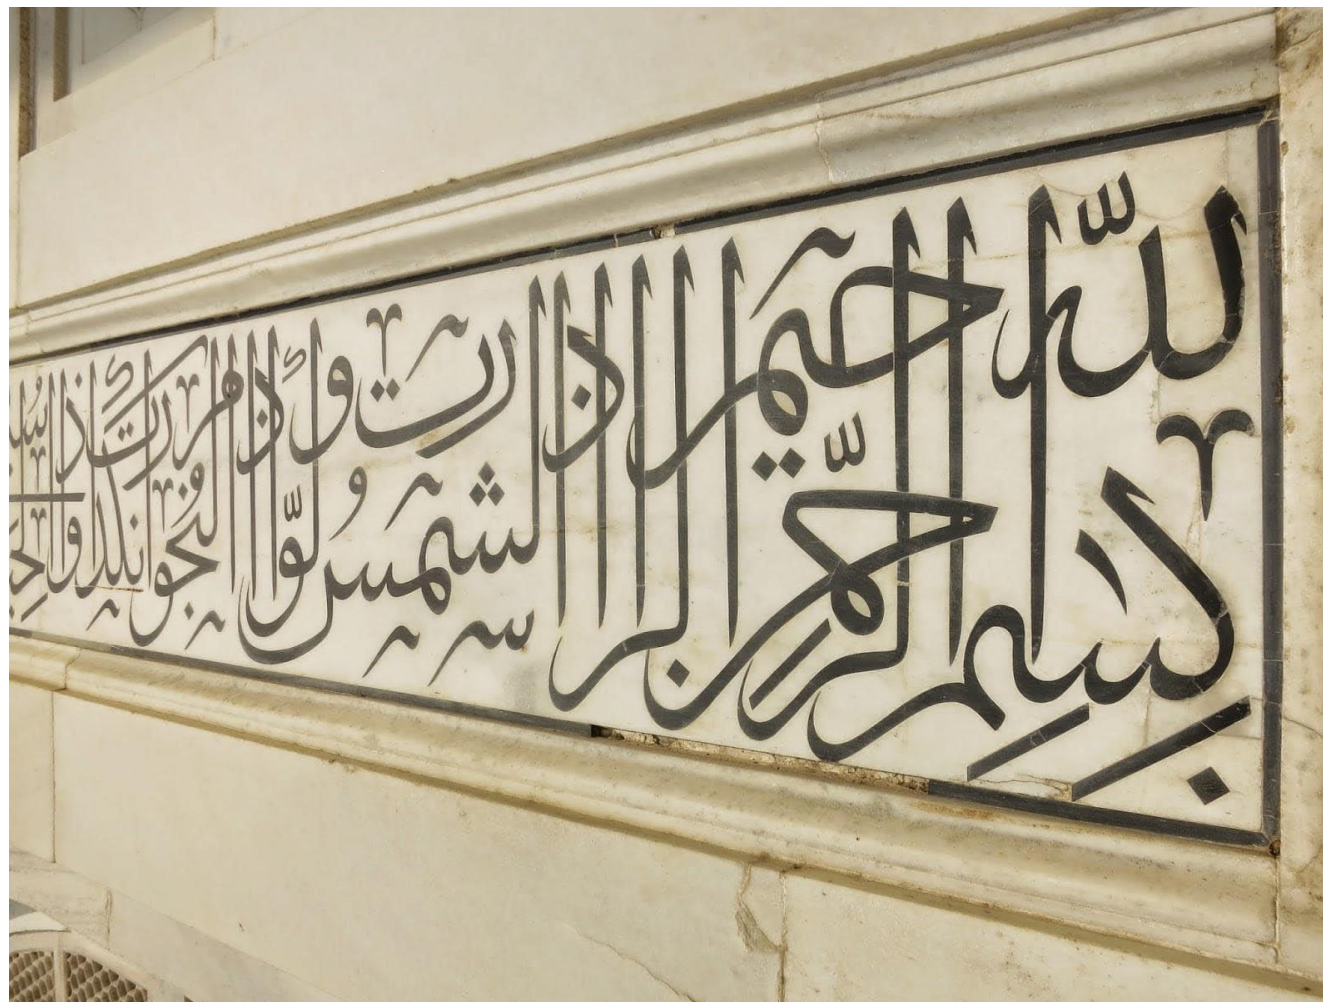 بِسْمِ اللّٰهِ الرَّحْمٰنِ الرَّحِيْمِ اِذَا الشَّمْسُ كُوِّرَتْ وَاِذَا النُّجُوْمُ انْكَدَرَتْ وَاِذَا الْجِبَالُ